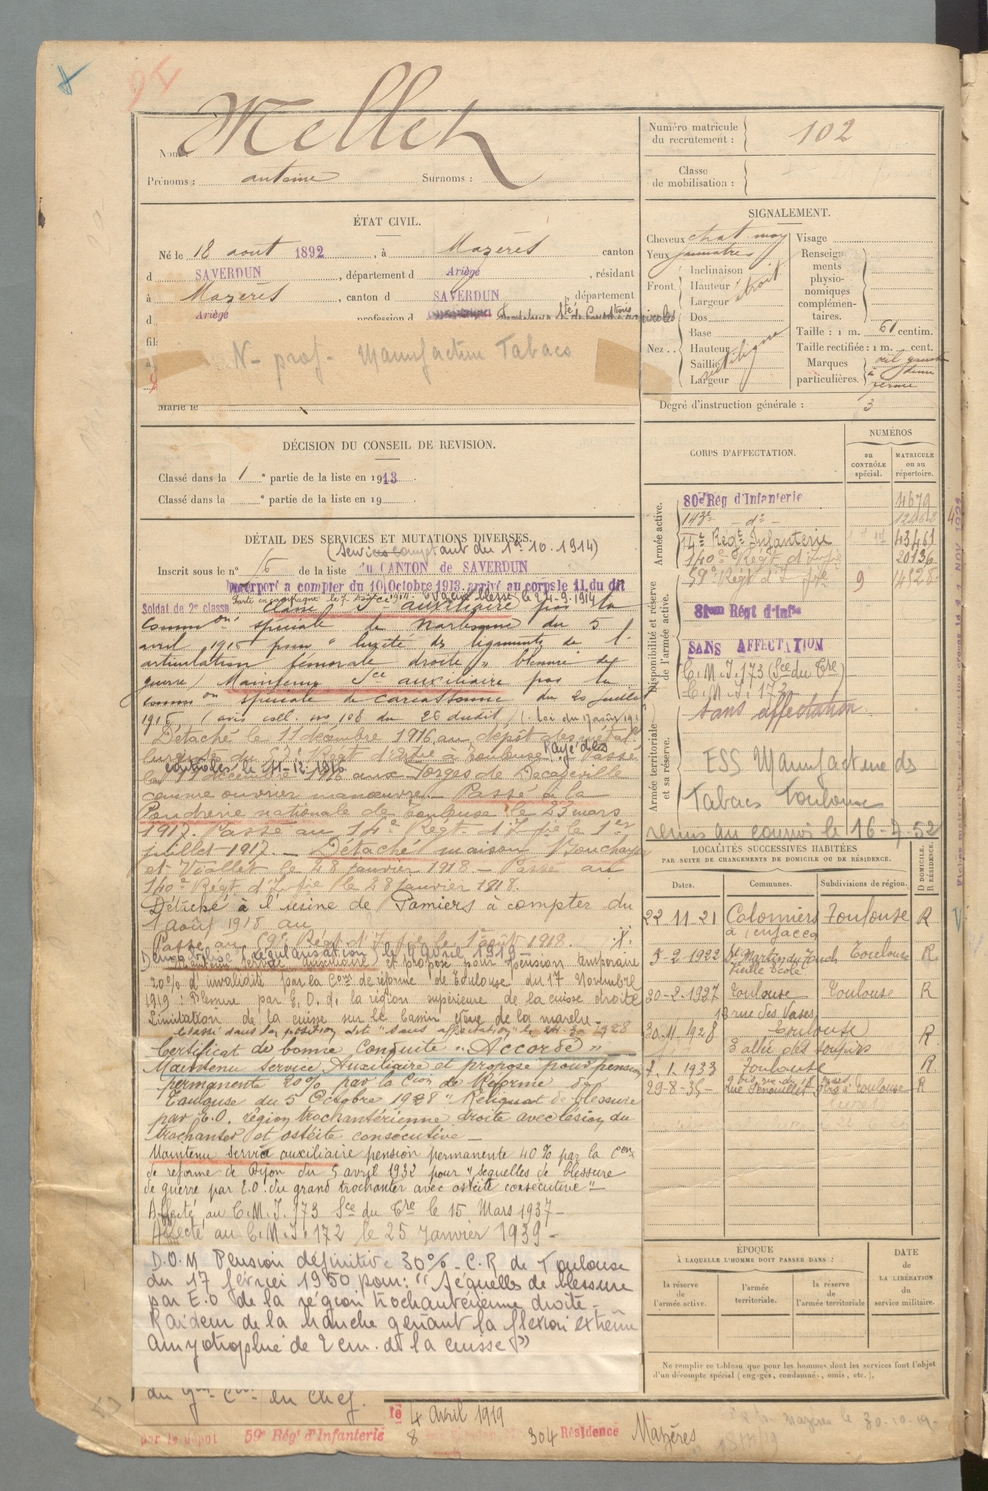 Mellet
Nom :
Prénoms : antoine Surnoms :
Numéro matricule du recrutement : 102
Classe de mobilisation :
ÉTAT CIVIL.
Né le 18 août 1892, à Mazères canton
d SAVERDUN, département d Ariège, résidant
à Mazères, canton d SAVERDUN, département
d Ariège profession d
N- prof- Manufacture Tabacs
Marié le
SIGNALEMENT.
Cheveux chat. moy
Yeux
Front. Inclinaison
Hauteur
Largeur étroit
Nez.. Dos
Base
Hauteur
Saillie
Largeur
Visage
Renseignements physionomiques complémentaires.
Taille : 1 m. 61 centim.
Taille rectifiée : 1 m. cent.
Marques particulières.
Degré d'instruction générale : 3
DÉCISION DU CONSEIL DE REVISION.
Classé dans la 1 e partie de la liste en 1913
Classé dans la e partie de la liste en 19
DÉTAIL DES SERVICES ET MUTATIONS DIVERSES.
(Service comptant du 1er 10. 1914)
Inscrit sous le n° 16 de la liste du CANTON de SAVERDUN
Incorporé a compter du 10 Octobre 1913. arrivé au corps le 11, du dit
Soldat de 2e classe
Classé Sce auxiliaire par la
Common spéciale de Narbonne du 5
avril 1915 pour "laxité des ligaments de l'
articulation fémorale droite" blessure de
guerre / Maintenu Sce auxiliaire par la
Common spéciale de Carcassonne du 20 juillet
1916 (avis coll. no 108 du 26 dudit)
Détaché le 11 décembre 1916, au dépôt des métal-
Rayé des
contrôles le 11-12-1916
le 11 décembre 1916 aux Forges de Decazeville
comme ouvrier manœuvre. Passé à la
Poudrerie nationale de Toulouse le 23 mars
1917. Passé au 14e Régt d'Ifie le 1er
juillet 1917. - Détaché maison Bouchayer
et Viallet le 28 janvier 1918. - Passé au
140e Régt d'Ifie le 28 janvier 1918.
Détaché à l'usine de Pamiers à compter du
1 août 1918 au
Passé au 59e Régt d'Ifie le 1er août 1918.
Maintenu service auxiliaire et proposé pour pension temporaire
20% d'invalidité par la Con de réforme de Toulouse du 17 Novembre
1919 : Blessure par E.O. de la région supérieure de la cuisse droite
Limitation de la cuisse sur le bassin
Classé dans la position dite "sans affectation" le
Certificat de bonne Conduite "Accordé"
Maintenu Service Auxiliaire et proposé pour pension
permanente 20% par la Con de Réforme de
Toulouse du 5 Octobre 1928 "Reliquat de blessure
par E.O. région trochantérienne droite avec lésion du
trochanter et ostéite consécutive -
Maintenu service auxiliaire pension permanente 40% par la Con
de réforme de Dijon du 5 avril 1932 pour "séquelles de blessure
de guerre par E.O. du grand trochanter avec ostéite consécutive" -
Affecté au C.M.I. 173 Sce du Cre le 15 Mars 1937 -
Affecté au C.M.I. 172 le 25 Janvier 1939 -
D.O.M Pension définitive 30% - C.R de Toulouse
du 17 février 1950 pour : "Séquelles de blessure
par E.O de la région trochantérienne droite -
Raideur de la hanche gênant la flexion extrême
amyotrophie de 2 cm. de la cuisse"
en Chef.
par le dépôt 59e Rég! d'Infanterie le 4 Avril 1919
8 304 Résidence Mazères
CORPS D'AFFECTATION.
NUMÉROS
au CONTRÔLE spécial.
MATRICULE ou au répertoire.
Armée active.
80e Rég d'Infanterie 4679
143e - do -
14e Régt Infanterie 43461
140e Régt d'Ifie 20136
59e Régt d'Ifie 9 14828
Disponibilité et réserve de l'armée active.
81eme Régt d'Infie
SANS AFFECTATION
C.M.I. 173 (Sce du Cre)
C.M.I. 172
Sans affectation
Armée territoriale et sa réserve.
ESS Manufacture des
Tabacs Toulouse
16-7-52
LOCALITÉS SUCCESSIVES HABITÉES
PAR SUITE DE CHANGEMENTS DE DOMICILE OU DE RÉSIDENCE.
Dates. Communes. Subdivisions de région. D DOMICILE. R RÉSIDENCE.
22 11.21 Colomiers Toulouse R
5-2-1922 St Martin du Touch Toulouse R
Vieille école
20-2-1927 Toulouse Toulouse R
13 rue des Vases
30.11.1928 Toulouse R
3 allée des soupirs
7.1.1933 Toulouse R
29-8-35- Toulouse R
ÉPOQUE
À LAQUELLE L'HOMME DOIT PASSER DANS :
la réserve de l'armée active.
l'armée territoriale.
la réserve de l'armée territoriale
DATE de LA LIBÉRATION du service militaire.
Ne remplir ce tableau que pour les hommes dont les services font l'objet
d'un décompte spécial (engagés, condamnés, omis, etc.).